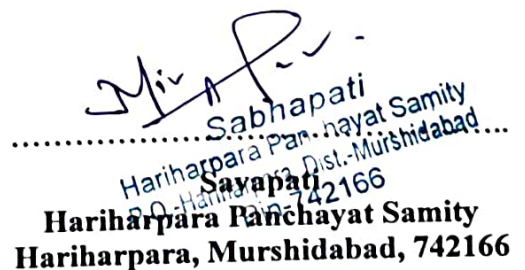 Sabhapati
Hariharpara Panchayat Samity
P.O.-Hariharpara, Dist.-Murshidabad
Pin-742166
Savapati
Hariharpara Panchayat Samity
Hariharpara, Murshidabad, 742166